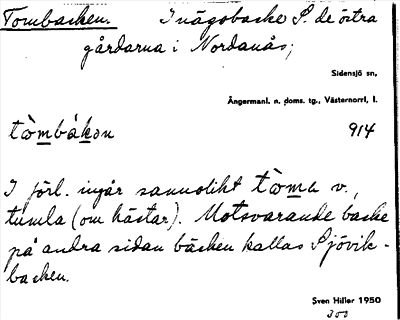 Tombacken. I vägsbacke S. de östra
gårdarna i Nordanås;
Sidensjö sn,
Ångermanl. n. doms. tg., Västernorrl. l.
tòmbákən 914
I förl. ingår sannolikt tòma v.,
tumla (om hästar). Motsvarande backe
på andra sidan bäcken kallas Sjövik-
backen.
Sven Hiller 1950
300